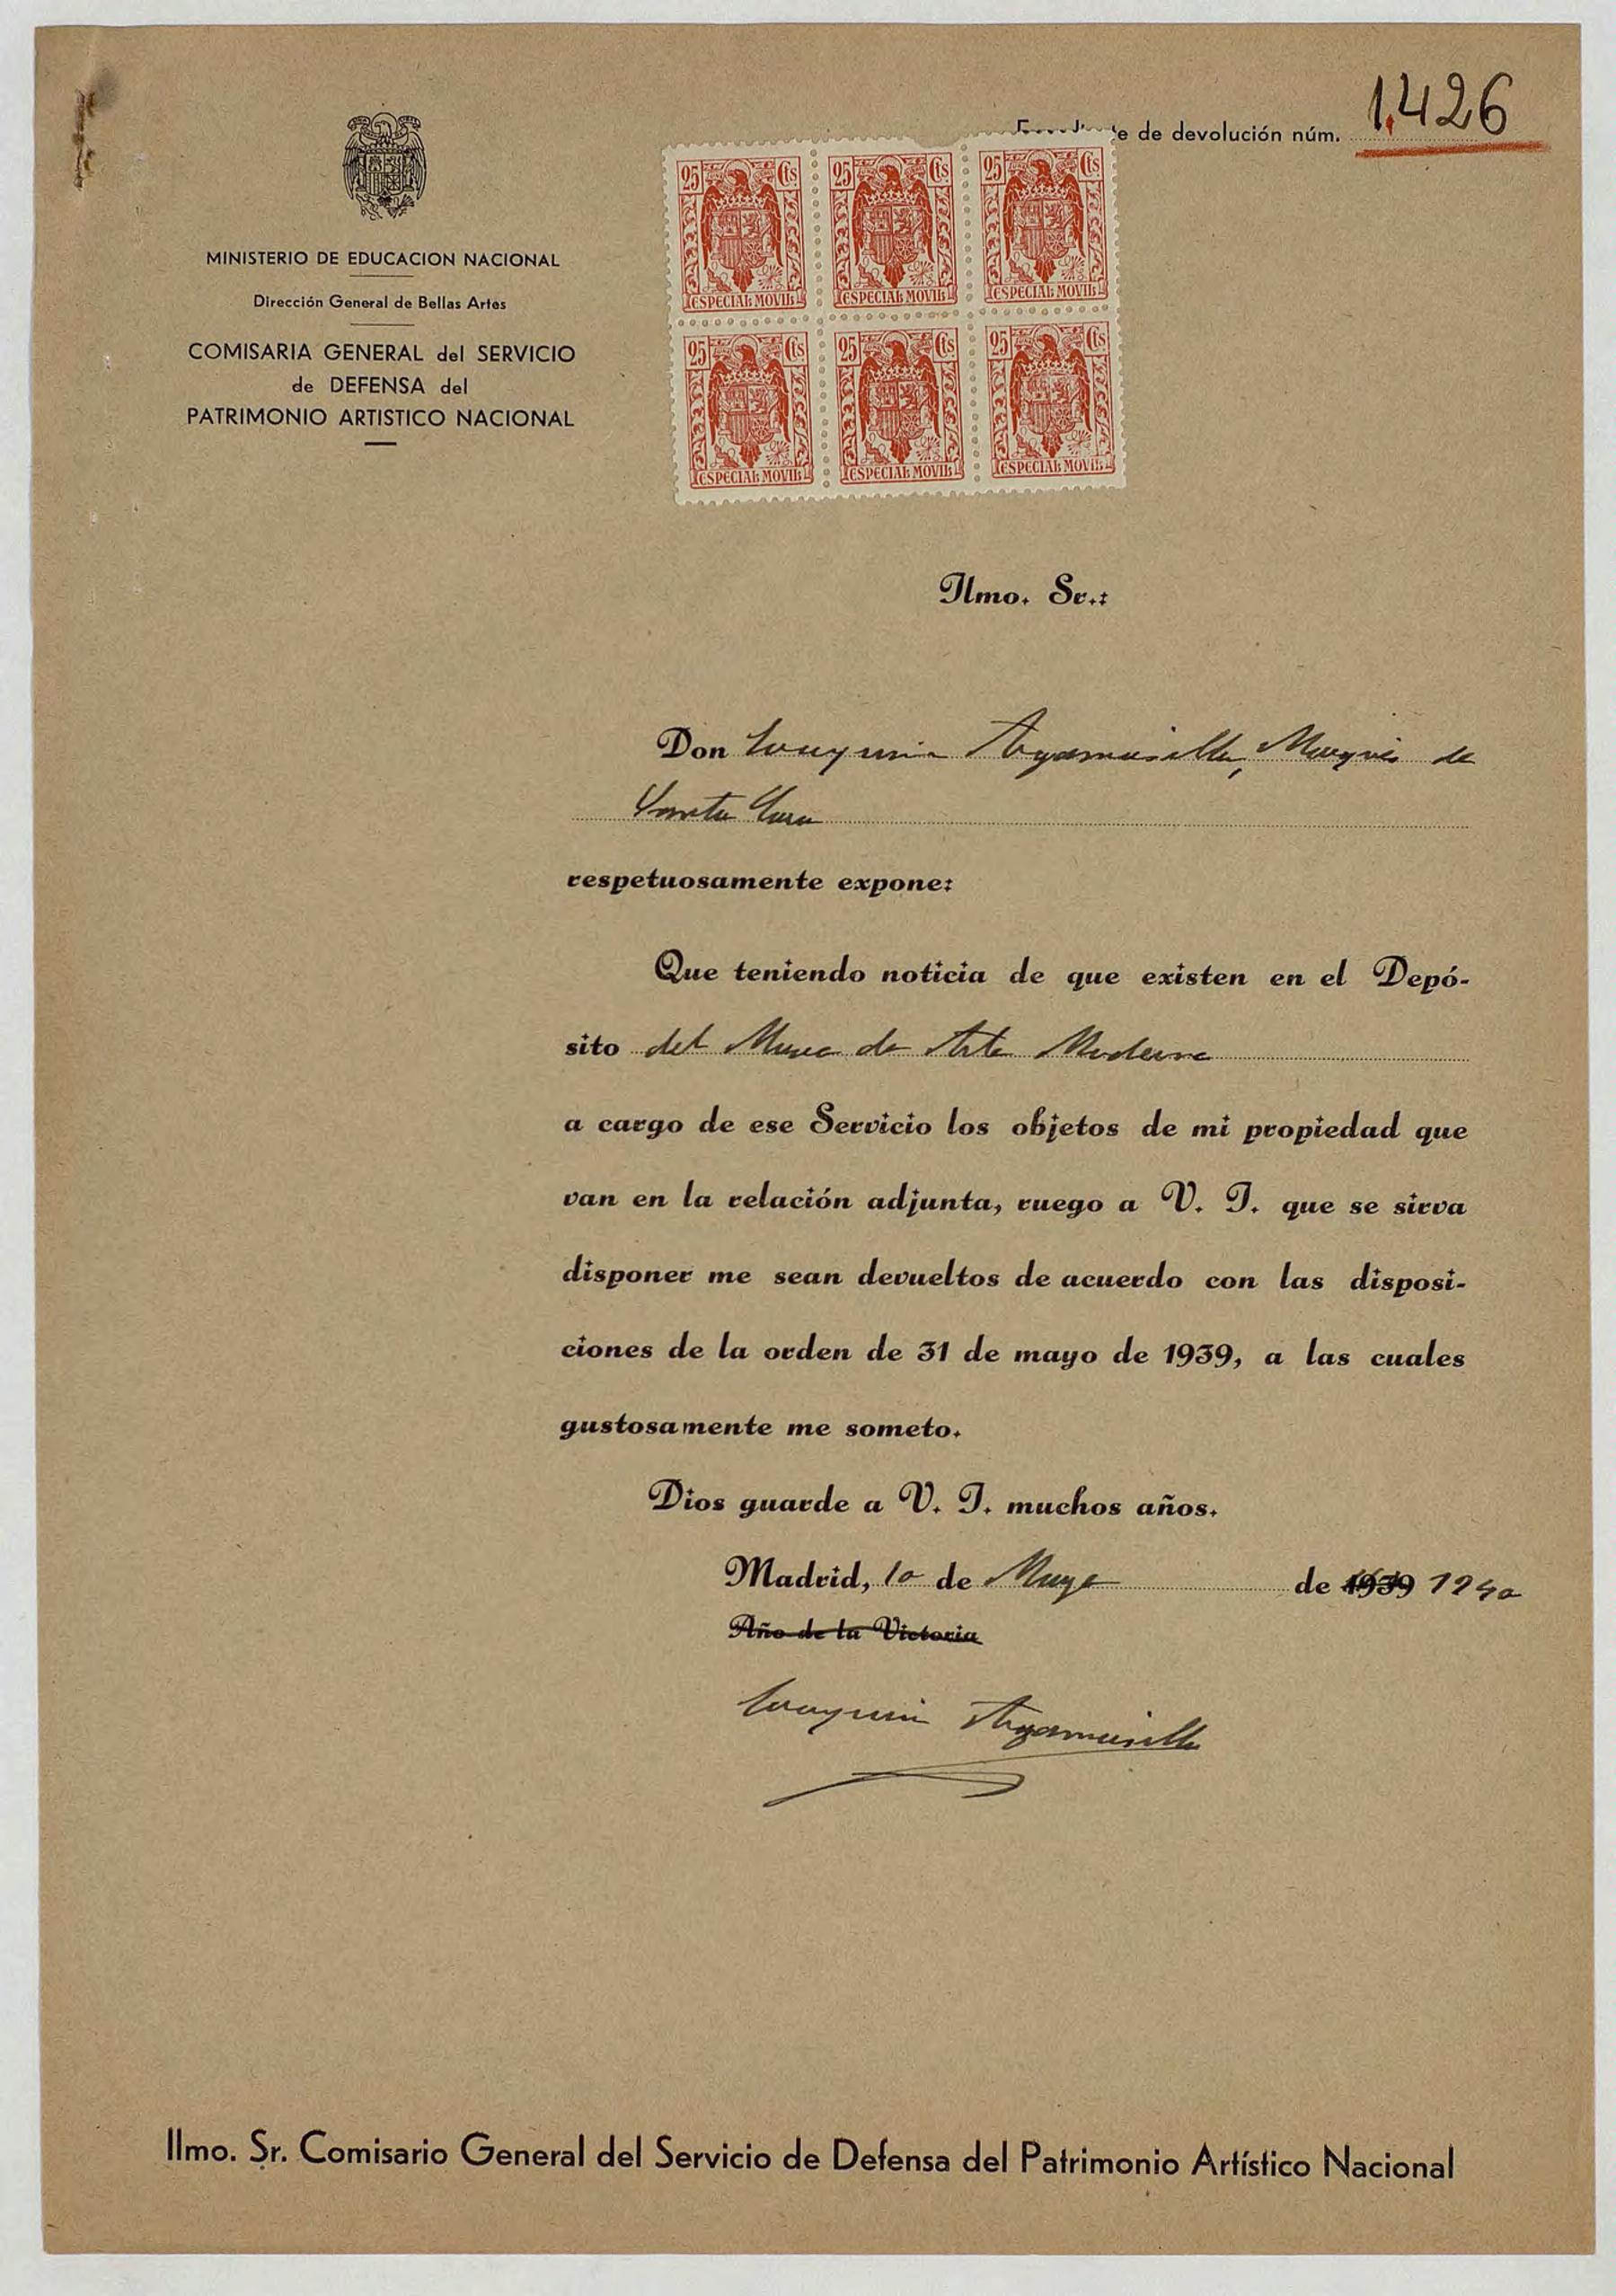 1.426
e de devolución núm.
MINISTERIO DE EDUCACION NACIONAL
Dirección General de Bellas Artes
COMISARIA GENERAL del SERVICIO
de DEFENSA del
PATRIMONIO ARTISTICO NACIONAL
25 Cts 25 Cts 25 Cts
ESPECIAL MOVIL ESPECIAL MOVIL ESPECIAL MOVIL
25 Cts 25 Cts 25 Cts
ESPECIAL MOVIL ESPECIAL MOVIL ESPECIAL MOVIL
Ilmo. Sr.:
Don Joaquin Argamasilla, Marqués de
Santa Cara
respetuosamente expone:
Que teniendo noticia de que existen en el Depó-
sito del Museo de Arte Moderno
a cargo de ese Servicio los objetos de mi propiedad que
van en la relación adjunta, ruego a V. I. que se sirva
disponer me sean devueltos de acuerdo con las disposi-
ciones de la orden de 31 de mayo de 1939, a las cuales
gustosamente me someto.
Dios guarde a V. I. muchos años.
Madrid, 10 de Mayo de 1939 1940
Año de la Victoria
Joaquin Argamasilla
Ilmo. Sr. Comisario General del Servicio de Defensa del Patrimonio Artístico Nacional